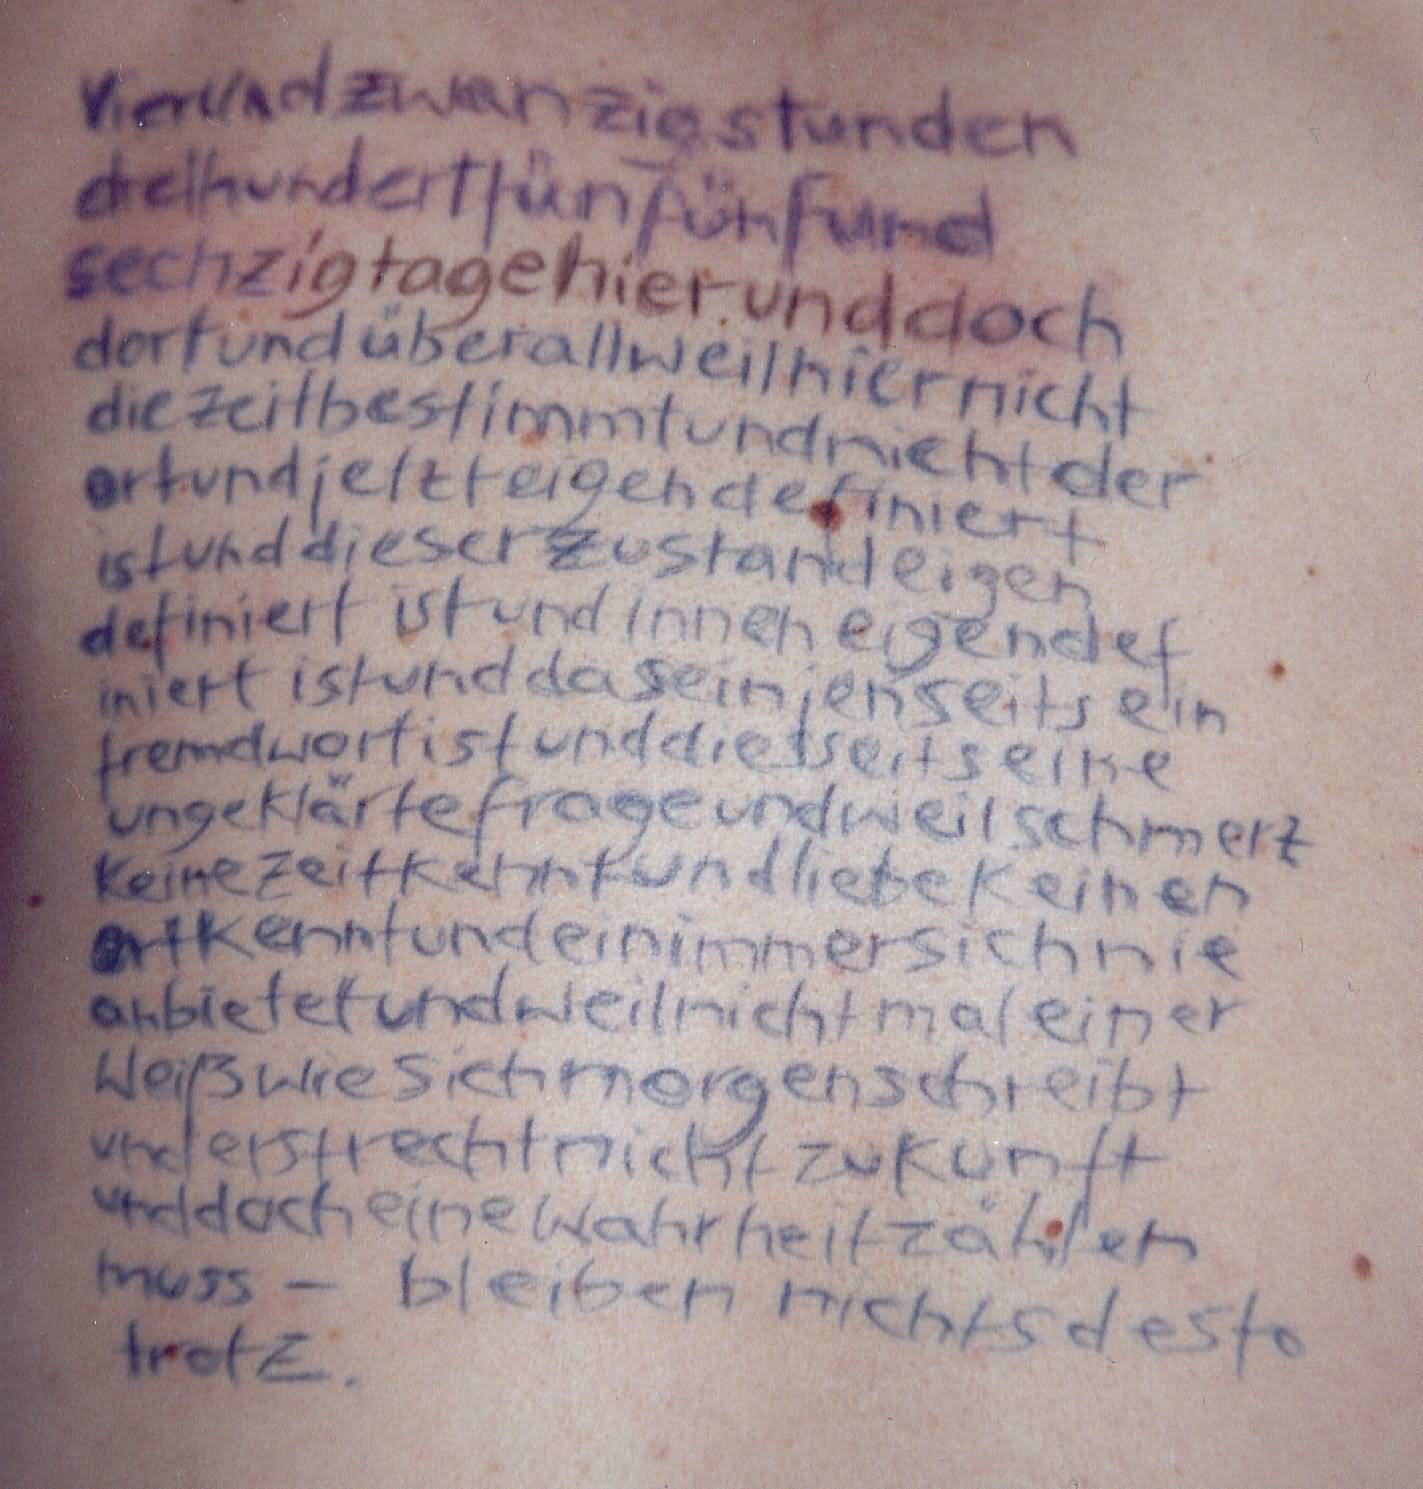 vierundzwanzigstunden
dreihundertfünfünfund
sechzigtagehierunddoch
dortundüberallweilhiernicht
diezeitbestimmtundnichtder
ortundjetzteigendefiniert
istunddieserzustandeigen
definiert istundinneneigendef
iniert istunddaseinjenseitsein
fremdwortistunddiesseitseine
ungeklärtefrageundweilschmerz
keinezeitkenntundliebekeinen
ortkenntundeinimmersichnie
anbietetundweilnichtmaleiner
weißwiesichmorgenschreibt
understrechtnichtzukunft
unddocheinewahrheitzählen
muss – bleiben nichtsdesto
trotz.